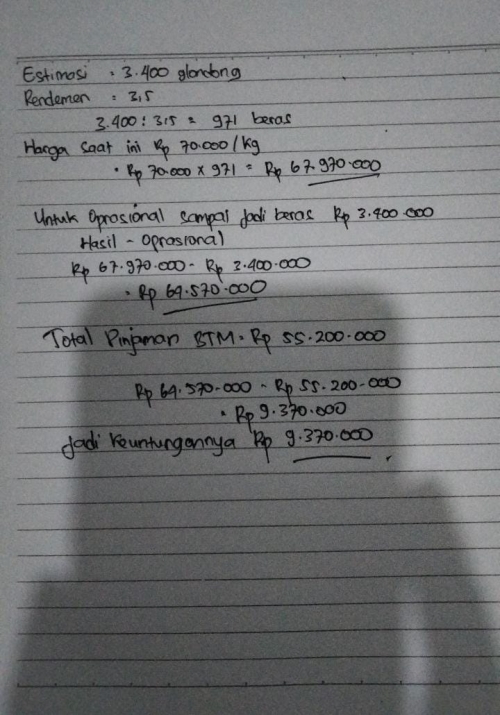 Estimasi = 3.400 glondong
Rendemen = 3,5
3.400 : 3,5 = 971 beras
Harga saat ini Rp 70.000/kg
= Rp 70.000 x 971 = Rp 67.970.000
Untuk Oprasional sampai jadi beras Rp 3.400.000
Hasil - Oprasional
Rp 67.970.000 - Rp 3.400.000
= Rp 64.570.000
Total Pinjaman BTM = Rp 55.200.000
Rp 64.570.000 - Rp 55.200.000
= Rp 9.370.000
Jadi Keuntungannya Rp 9.370.000